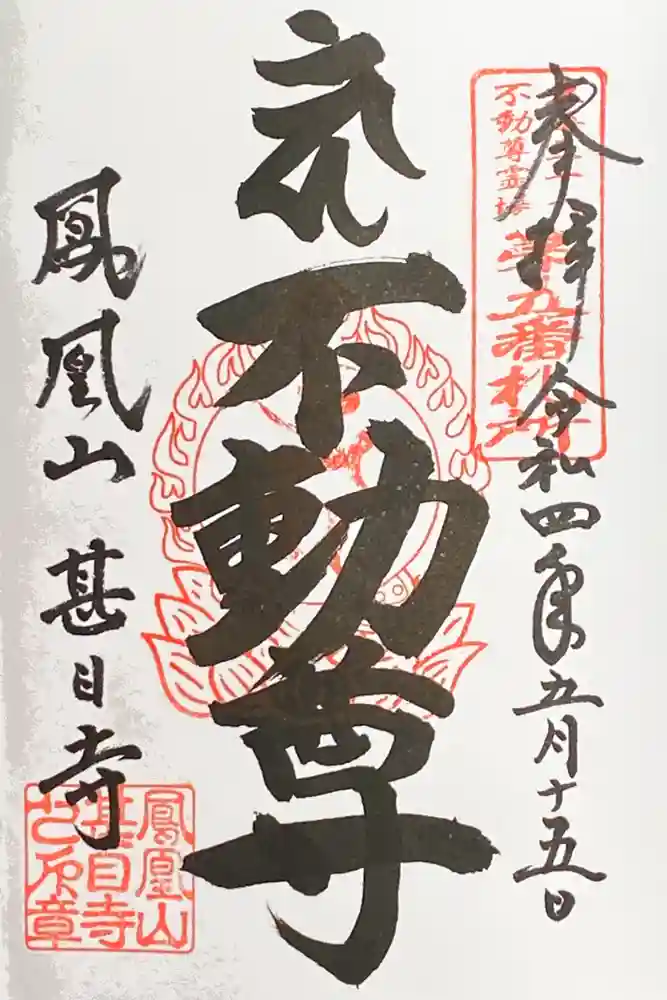 奉拝
令和四年五月十五日
不動尊霊場
第五番札所
不動尊
鳳凰山
甚目寺
鳳凰山
甚目寺